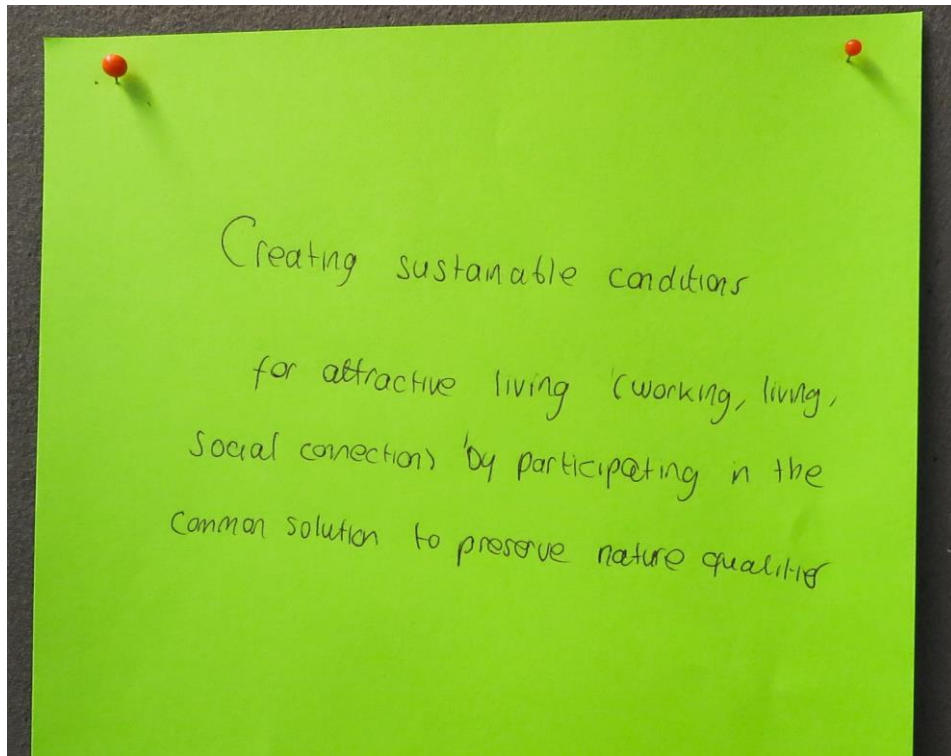 Creating sustainable conditions
for attractive living (working, living,
social connection) by participating in the
common solution to preserve nature qualities